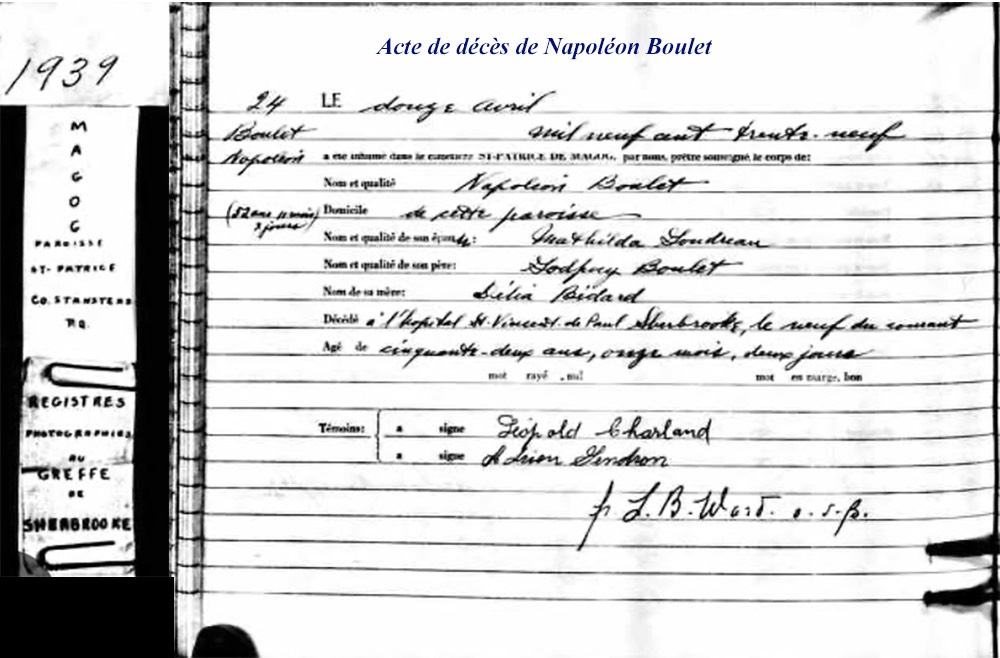 Acte de décès de Napoléon Boulet
1939
MAGOG
PAROISSE
ST-PATRICE
CO. STANSTEAD
P.Q.
REGISTRES
PHOTOGRAPHIÉS
AU
GREFFE
DE
SHERBROOKE
24 LE douze avril
Boulet mil neuf cent trente-neuf
Napoléon a été inhumé dans le cimetière ST-PATRICE DE MAGOG, par nous, prêtre soussigné, le corps de:
Nom et qualité Napoléon Boulet
(52 ans 11 mois Domicile de cette paroisse
jours)
Nom et qualité de son épouse: Mathilda Gendreau
Nom et qualité de son père: Godfroy Boulet
Nom de sa mère: Délia Bédard
Décédé à l'hopital St. Vincent de Paul Sherbrooke, le neuf du courant
Agé de cinquante-deux ans, onze mois, deux jours
mot rayé, nul mot en marge, bon
Témoins: a signé Léopold Charland
a signé Adrien Gendron
fr L. B. Ward. o.s.b.